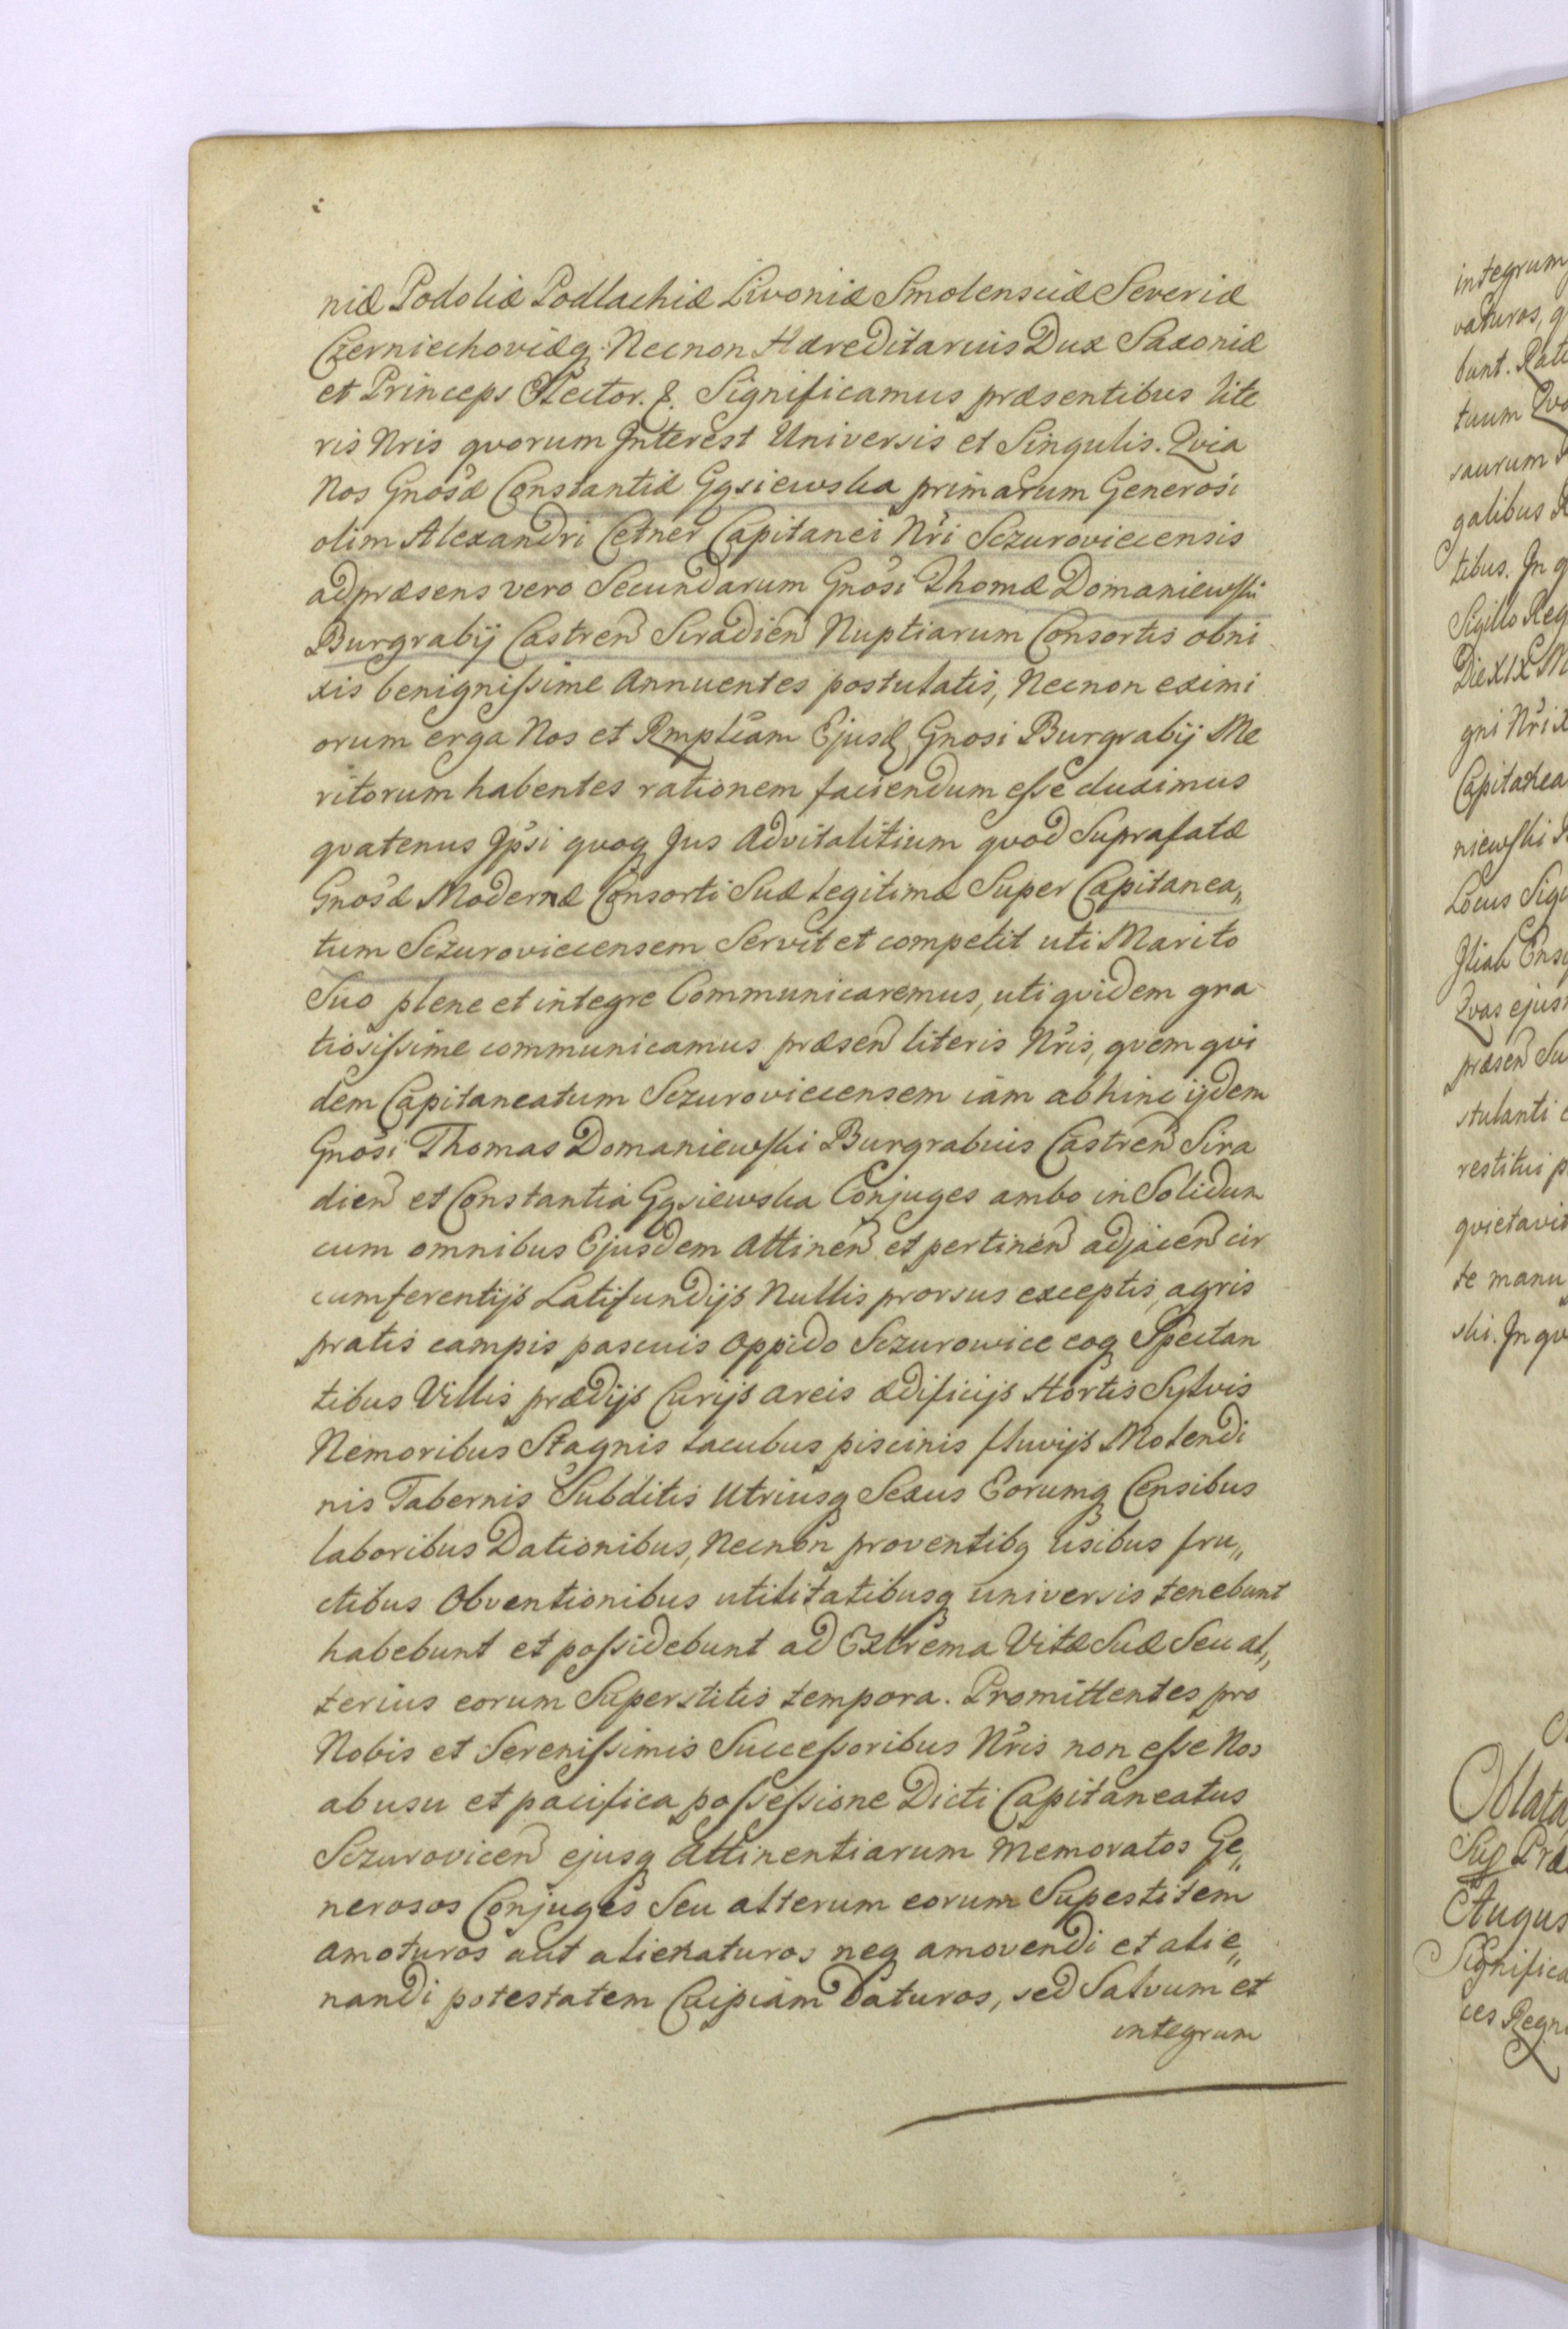 niæ Podoliæ Podlachiæ Livoniæ Smolensciæ Severiæ
Czerniechoviæq Necnon Hæreditarius Dux Saxoniæ
et Princeps Elector. &. Significamus præsentibus lite
ris Nris qvorum Interest Universis et Singulis. Qvia
Nos Gnosæ Constantiæ Gąsiewska primarum Generosi
olim Alexandri Cetner Capitanei Nri Sczuroviecensis
adpræsens vero Secundarum Gnosi Thomæ Domaniewski
Burgrabij Castren Siradien Nuptiarum Consortis obni
xis benignissime Annuentes postulatis, Necnon eximi
orum erga Nos et Rmpblcam Ejusd Gnosi Burgrabij Me
ritorum habentes rationem faciendum esse duximus
qvatenus Ipsi qvoq Jus Advitalitium qvod Suprafatæ
Gnosæ Modernæ Consorti Suæ legitimæ Super Capitanea„
tum Sczuroviecensem Servit et competit uti Marito
Suo plene et integre Communicaremus, uti qvidem gra
tiosissime communicamus præsen literis Nris, qvem qvi
dem Capitaneatum Sczuroviecensem iam abhinc ijdem
Gnosi Thomas Domaniewski Burgrabius Castren Sira
dien et Constantia Gąsiewska Conjuges ambo in Solidum
cum omnibus Ejusdem Attinen et pertinen adjacen cir
cumferentijs Latifundijs Nullis prorsus exceptis, agris
pratis campis pascuis Oppido Sczurowice eoq Spectan
tibus Villis prædijs Curijs areis ædificijs Hortis Sylvis
Nemoribus Stagnis lacubus piscinis fluvijs Molendi
nis Tabernis Subditis Utriusq Sexus Eorumq Censibus
laboribus Dationibus, Necnon proventibq Usibus fru„
ctibus Obventionibus utilitatibusq universis tenebunt
habebunt et possidebunt ad Extrema Vitæ Suæ Seu al„
terius eorum Superstitis tempora. Promittentes pro
Nobis et Serenissimis Successoribus Nris non esse Nos
ab usu et pacifica possessione Dicti Capitaneatus
Sczurovicen ejusq Attinentiarum Memoratos Ge„
nerosos Conjuges Seu alterum eorum Supestitem
amoturos aut alienaturos neq amovendi et alie„
nandi potestatem Cuipiam Daturos, sed Salvum et
integrum
integrum
vaturos,
bunt.
tuum
saurum
galibus
tibus. In
Sigillo Reg
Die XIX M
gni Nri
Capitanea
niewski
Locus Sig

Qvas ejus
præsen Su
stulanti
restitui p
qvietavit
te manu
ski. In qv
Oblata

Augus
Significa
ces Regni